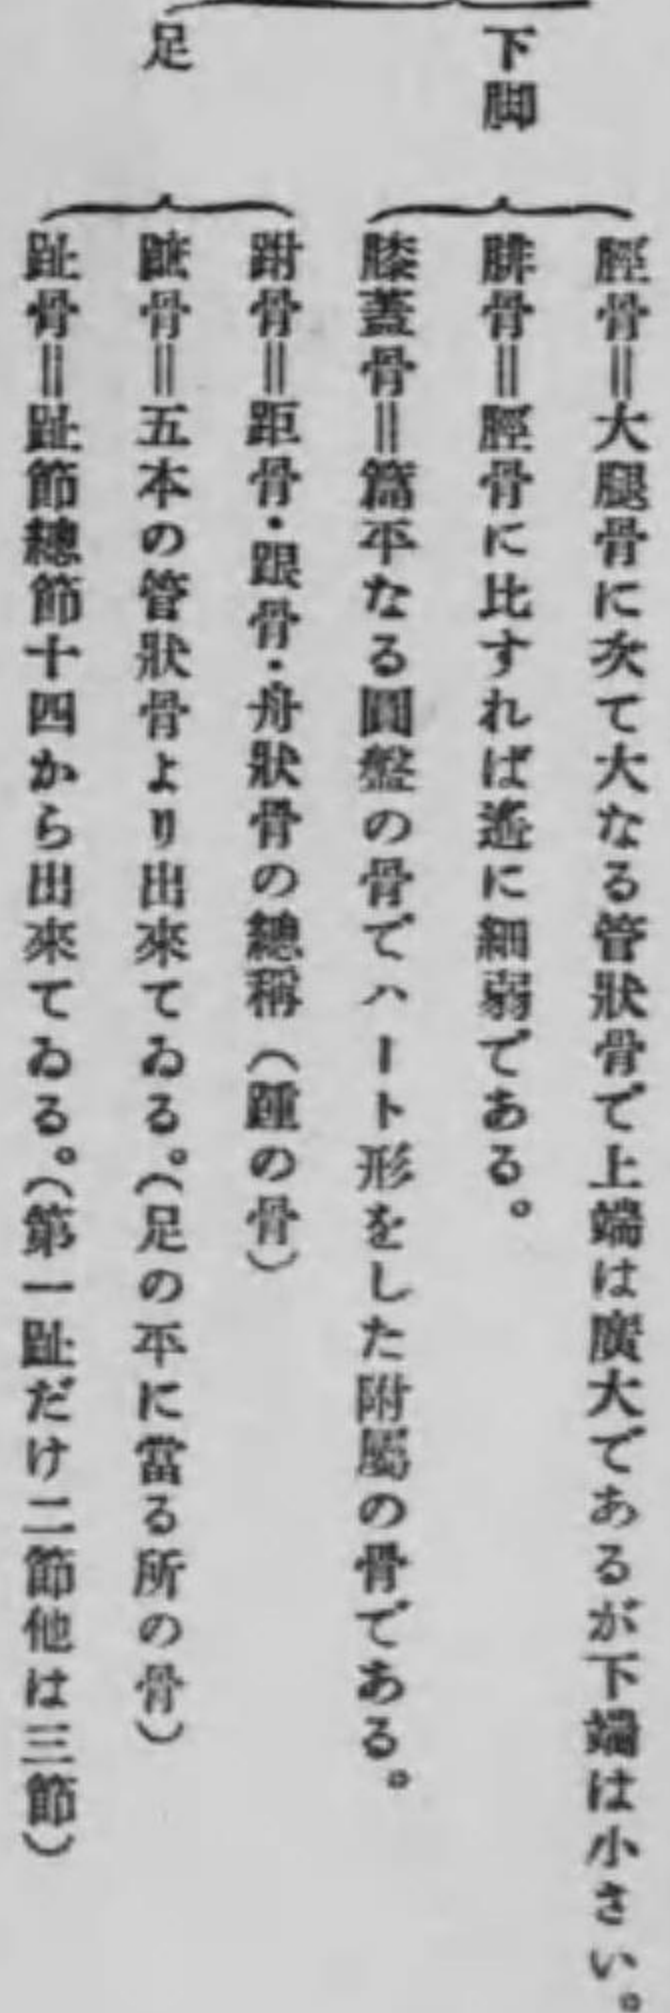 下脚
脛骨＝大腿骨に次て大なる管狀骨で上端は廣大であるが下端は小さい。
腓骨＝脛骨に比すれば遙に細弱である。
膝蓋骨＝篇平なる圓盤の骨でハート形をした附屬の骨である。
足
跗骨＝距骨・跟骨・舟狀骨の總稱（踵の骨）
蹠骨＝五本の管狀骨より出來てゐる。（足の平に當る所の骨）
趾骨＝趾節總節十四から出來てゐる。（第一趾だけ二節他は三節）